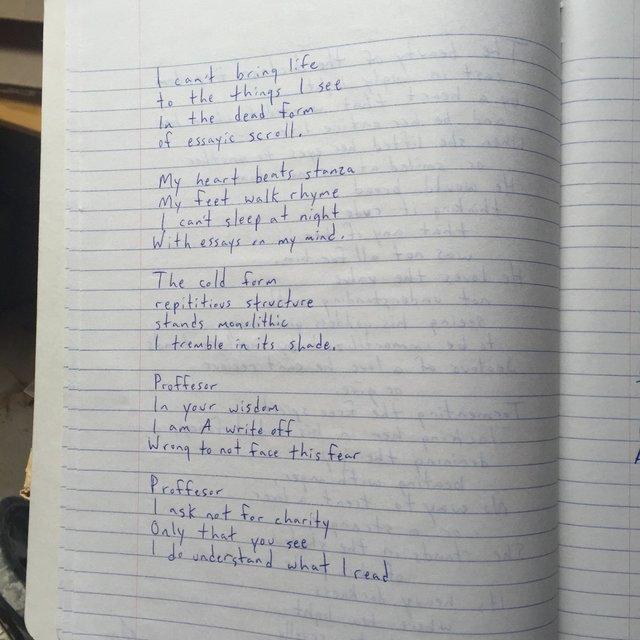 I can't bring life
to the things I see
In the dead form
of essayic scroll.
My heart beats stanza
My feet walk rhyme
I can't sleep at night
With essays on my mind.
The cold form
repititious structure
stands monolithic
I tremble in its shade.
Proffesor
In your wisdom
I am A write off
Wrong to not face this fear
Proffesor
I ask not for charity
Only that you see
I do understand what I read